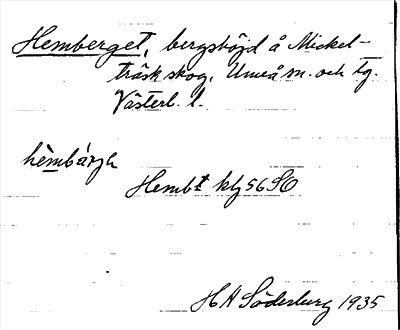 Hemberget, bergshöjd å Mickel-
träsk skog, Umeå sn. och tg.
Västerb. l.
hèmbárjh
Hembt klj 56 SO
H A Söderburg 1935